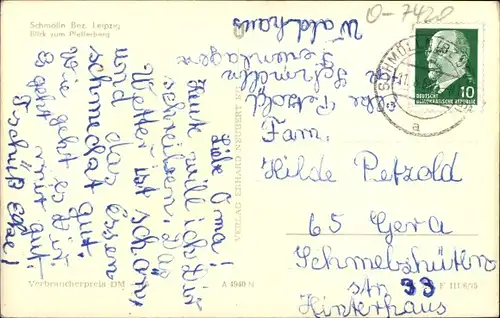 Schmölln Bez. Leipzig
Blick zum Pfefferberg
O-7420
Waldhaus
Ferienlager
Schmölln
Elke Petzold
Liebe Oma!
Heute will ich Dir
schreiben. Das
Wetter ist schön
und das Essen
schmeckt gut.
Wie geht es Dir
Es geht mir gut.
Tschüß Elke!
VERLAG ERHARD NEUBERT
SCHMÖL
a
DEUTSCHE
DEMOKRATISCHE REPUBLIK
10
Fam.
Hilde Petzold
65 Gera
Schmelzhüttn
str. 33
Hinterhaus
Verbraucherpreis DM
A 4940 N